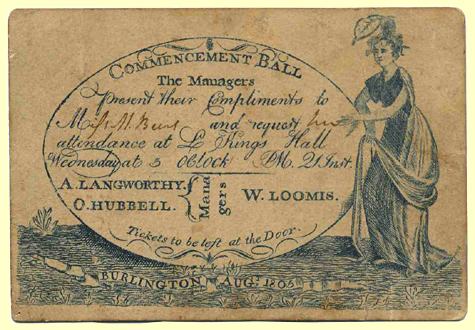 COMMENCEMENT BALL
The Managers
present their Compliments to
Miss M and request her
attendance at L Kings Hall
Wednesday at 5 oClock PM. 21 Inst.
A. LANGWORTHY. Mana W. LOOMIS.
O. HUBBELL. gers
Tickets to be left at the Door.
BURLINGTON AUGt. 1805